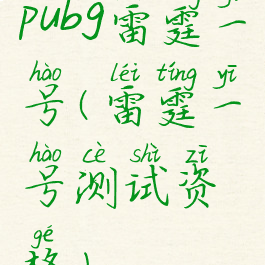 pubg雷霆一
hào léi tíng yī
号(雷霆一
hào cè shì zī
号测试资
gé
格)